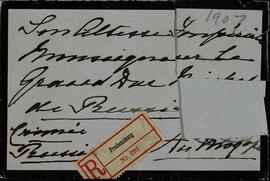 1907
Son Altesse Impériale
Monseigneur le
Grand Duc Michel
de Russie
Crimée
Russie
R
Fredensborg
Nr. 291